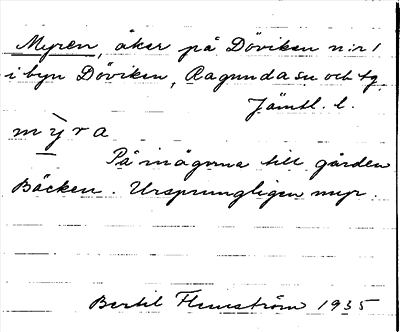 Myren, åker på Döviken n:r 1
i byn Döviken, Ragunda sn och tg.
Jämtl. l.
mỳra
På inägorna till gården
Bäcken. Ursprungligen myr.
Bertil Flemström 1935